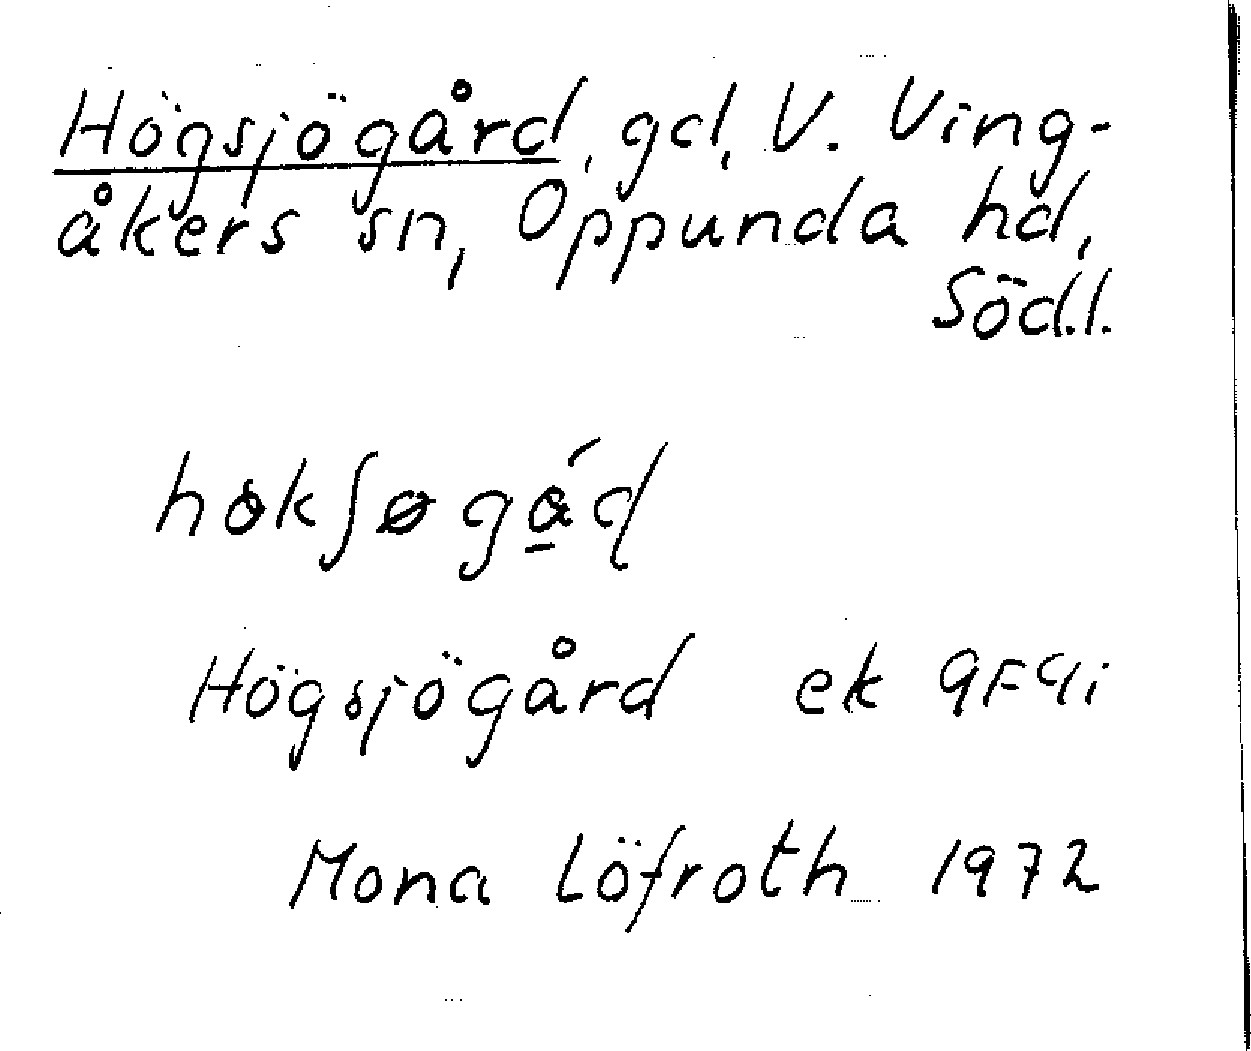 Högsjögård, gd, V. Ving-
åkers sn, Oppunda hd,
Söd.l.
Högsjögård ek 9F4i
Mona Löfroth 1972